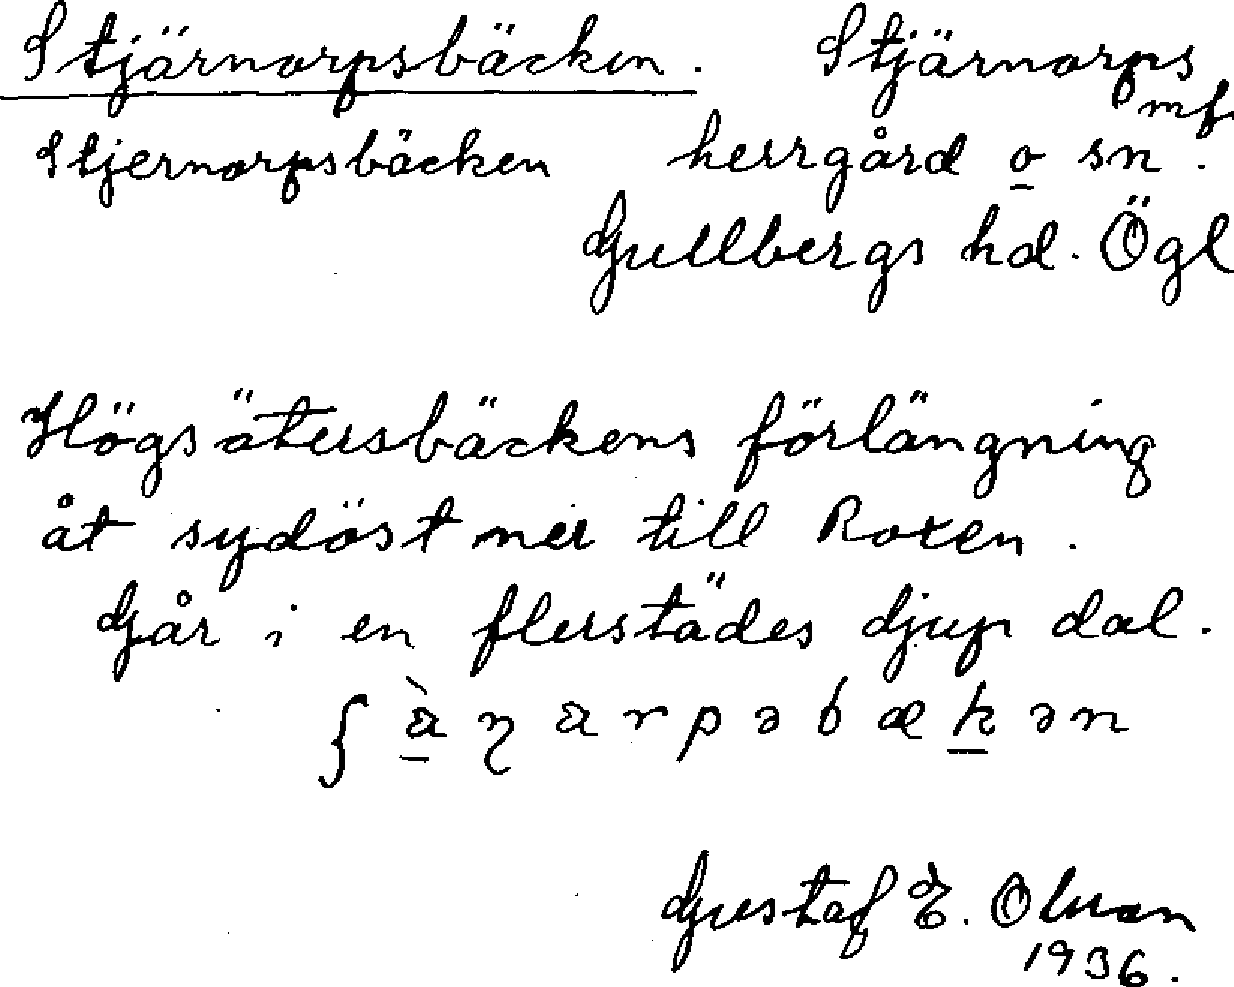 Stjärnorpsbäcken. Stjärnorps
mfl
Stjernorpsbäcken herrgård o sn.
Gullbergs hd. Ögl
Högsätersbäckens förlängning
åt sydöst ner till Roxen.
Går i en flerstädes djup dal.
Gustaf E. Olson
1936.